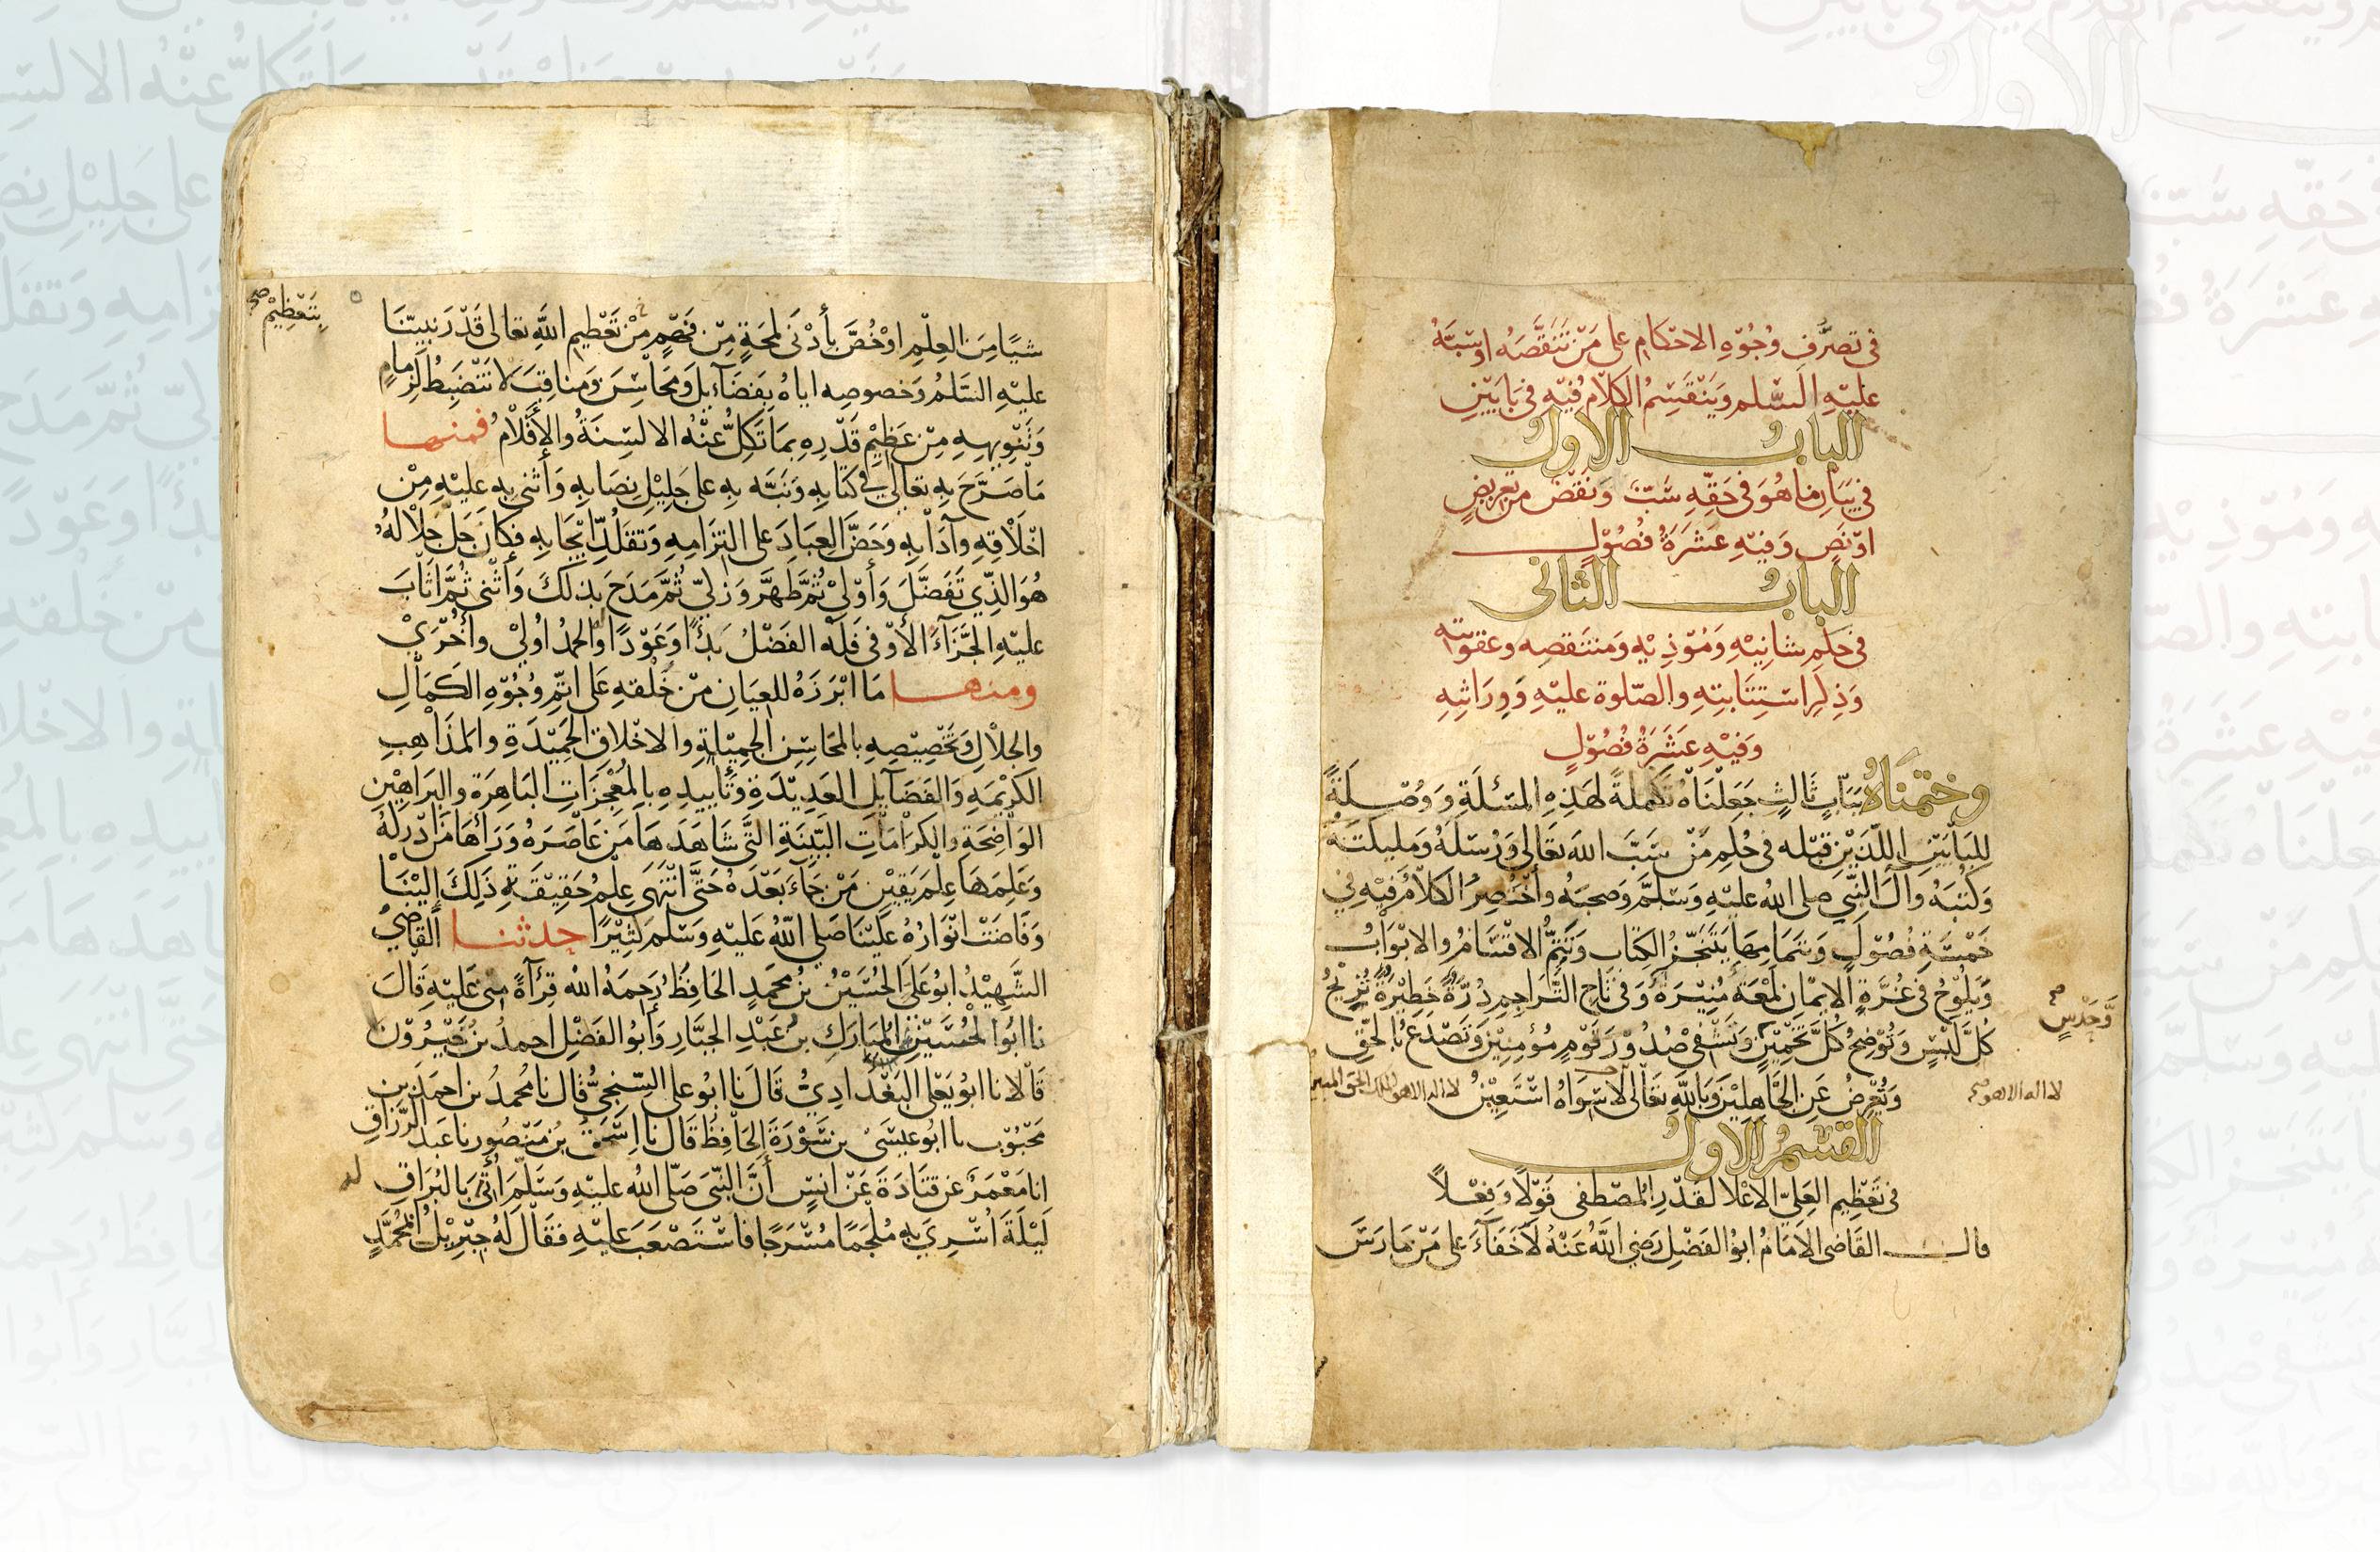 في تصرف وجوه الاحكام على من تنقصه او سبه
عليه السلم وينقسم الكلام فيه في بابين
الباب الاول
في بيان ما هو في حقه سب ونقص من تعريض
او نص وفيه عشرة فصول
الباب الثاني
في حكم شانيه ومؤذيه ومنتقصه وعقوبته
وذكر استتابته والصلوة عليه ووراثته
وفيه عشرة فصول
وختمناه بباب ثالث جعلناه تكملة لهذه المسئلة ووصلة
للبابين اللذين قبله في حكم من سب الله تعالى ورسله ومليكته
وكتبه وال النبي صلى الله عليه وسلم وصحبه واختصر الكلام فيه في
خمسة فصول وبتمامها يتنجز الكتاب وتتم الاقسام والابواب
ويلوح في غرة الايمان لمعة منيرة وفي تاج التراجم درة خطيرة تزيح
كل لبس وتوضح كل تخمين وتشفي صدور قوم مؤمنين وتصدع بالحق
وحدس صح
وتعرض عن الجاهلين وبالله تعالى لا سواه استعين لا اله الا هو الملك الحق المبين
لا اله الا هو صح
القسم الاول
في تعظيم العلي الاعلا لقدر المصطفى قولا وفعلا
قال القاضي الامام ابو الفضل رضي الله عنه لا خفاء على من مارس
شيا من العلم او خص بأدنى لمحة من فهم من تعظيم الله تعالى قدر نبينا
بتعظيم صح
عليه السلم وخصوصه اياه بفضآيل ومحاسن ومناقب لا تنضبط لزمام
وتنويهه من عظيم قدره بما تكل عنه الالسنة والأقلام فمنها
ما صرح به تعالى في كتابه ونبه به على جليل نصابه وأثنى به عليه من
اخلاقه وآدابه وحض العباد على التزامه وتقلد ايجابه فكان جل جلاله
هو الذي تفضل وأولى ثم طهر وزكى ثم مدح بذلك وأثنى ثم اثاب
عليه الجزآء الأوفى فله الفضل بدأ وعودا والحمد اولى وأخرى
ومنها ما ابرزه للعيان من خلقه على اتم وجوه الكمال
والجلال وتخصيصه بالمحاسن الجميلة والاخلاق الحميدة والمذاهب
الكريمه والفضآيل العديدة وتأييده بالمعجزات الباهرة والبراهين
الواضحة والكرامات البينة التي شاهدها من عاصره ورأها من ادركه
وعلمها علم يقين من جآء بعده حتى انتهى علم حقيقة ذلك إلينا
وفاضت انواره علينا صلى الله عليه وسلم كثيرا حدثنا القاضي
الشهيد ابو على الحسين بن محمد الحافظ رحمه الله قرآة مني عليه قال
نا ابو الحسين المبارك بن عبد الجبار وأبو الفضل احمد بن خيرون
قالا نا ابو يعلى البغدادي قال نا ابو على السنجي قال نا محمد بن احمد بن
محبوب نا ابو عيسى بن سورة الحافظ قال نا اسحق بن منصور نا عبد الرزاق
انا معمر عن قتادة عن انس أن النبي صلى الله عليه وسلم أتي بالبراق
ليلة اسري به ملجما مسرجا فاستصعب عليه فقال له جبريل أبمحمد